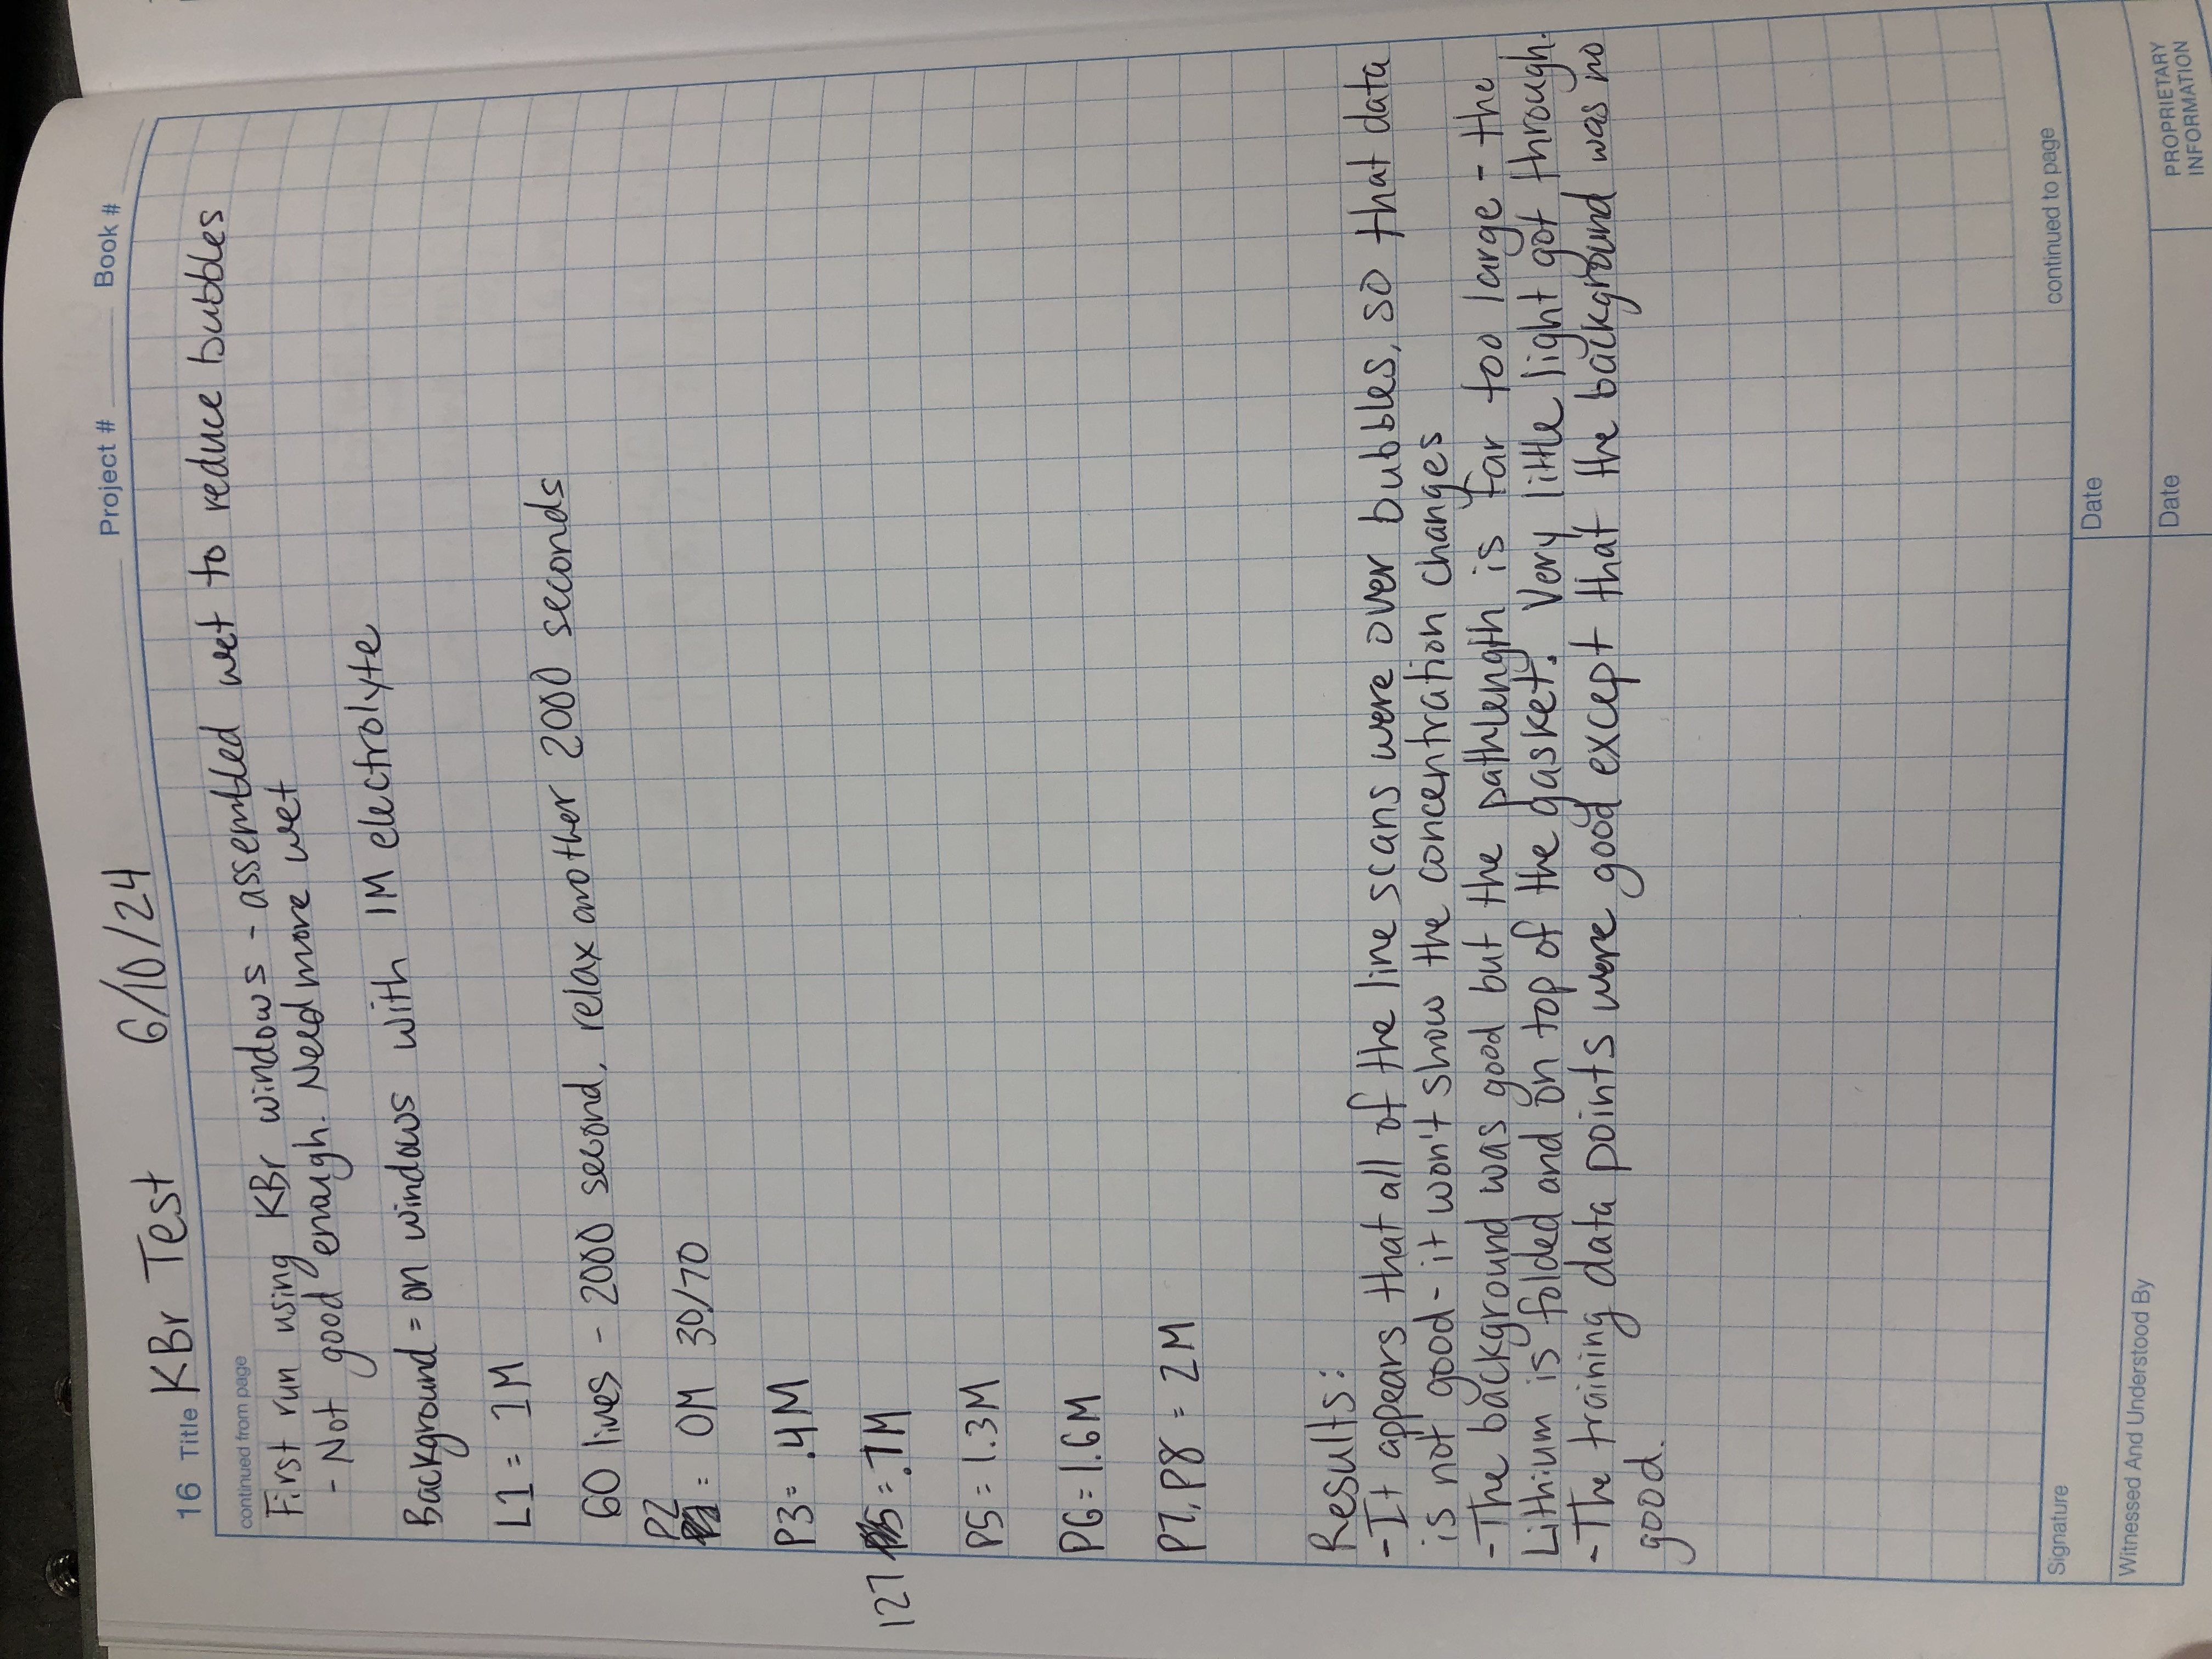 Project # Book #
16 Title KBr Test 6/10/24
continued from page
First run using KBr windows - assembled wet to reduce bubbles
- Not good enough. Need more wet
Background = on windows with 1M electrolyte
L1 = 1M
60 lines - 2000 second, relax another 2000 seconds
P2
= 0M 30/70
P3 = .4M
127 = .7M
P5 = 1.3M
P6 = 1.6M
P7, P8 = 2M
Results:
- It appears that all of the line scans were over bubbles, so that data
is not good - it won't show the concentration changes
- The background was good but the pathlength is far too large - the
Lithium is folded and on top of the gasket. Very little light got through.
- The training data points were good except that the background was no
good.
continued to page
Signature
Date
Witnessed And Understood By
Date
PROPRIETARY
INFORMATION